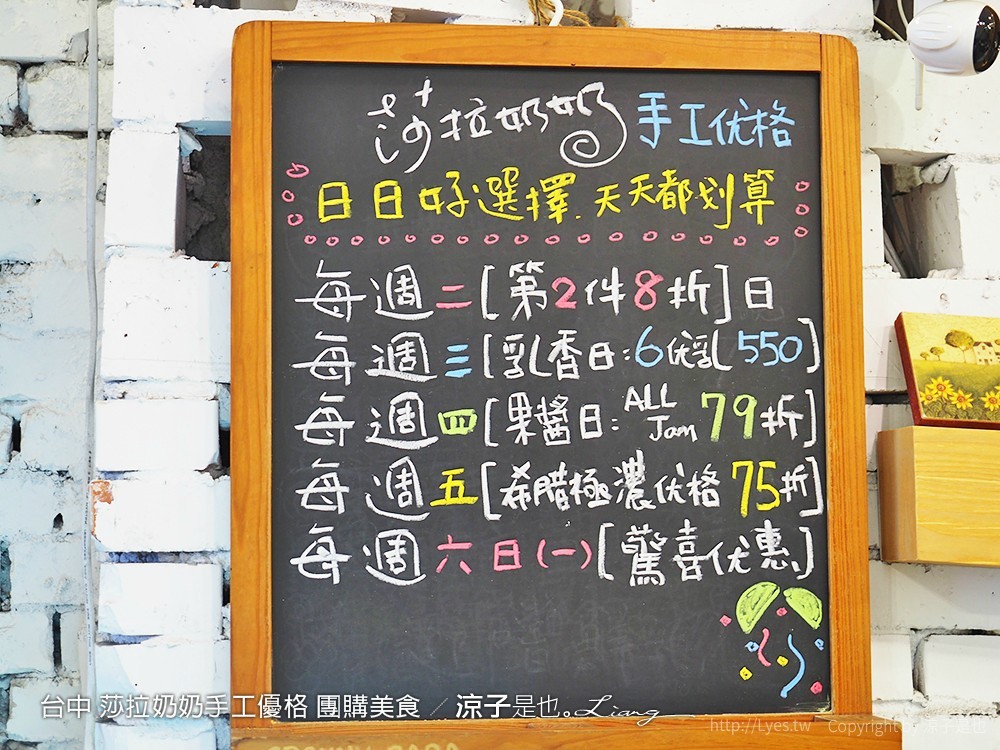 莎拉奶奶手工优格
日日好選擇.天天都划算
每週二[第2件8折]日
每週三[乳香日:6优乳550]
每週四[果醬日:ALL Jam 79折]
每週五[希腊極濃优格75折]
每週六日(一)[驚喜优惠]
台中 莎拉奶奶手工優格 團購美食 ／ 涼子是也。Liang
http://Lyes.tw Copyright by 涼子是也